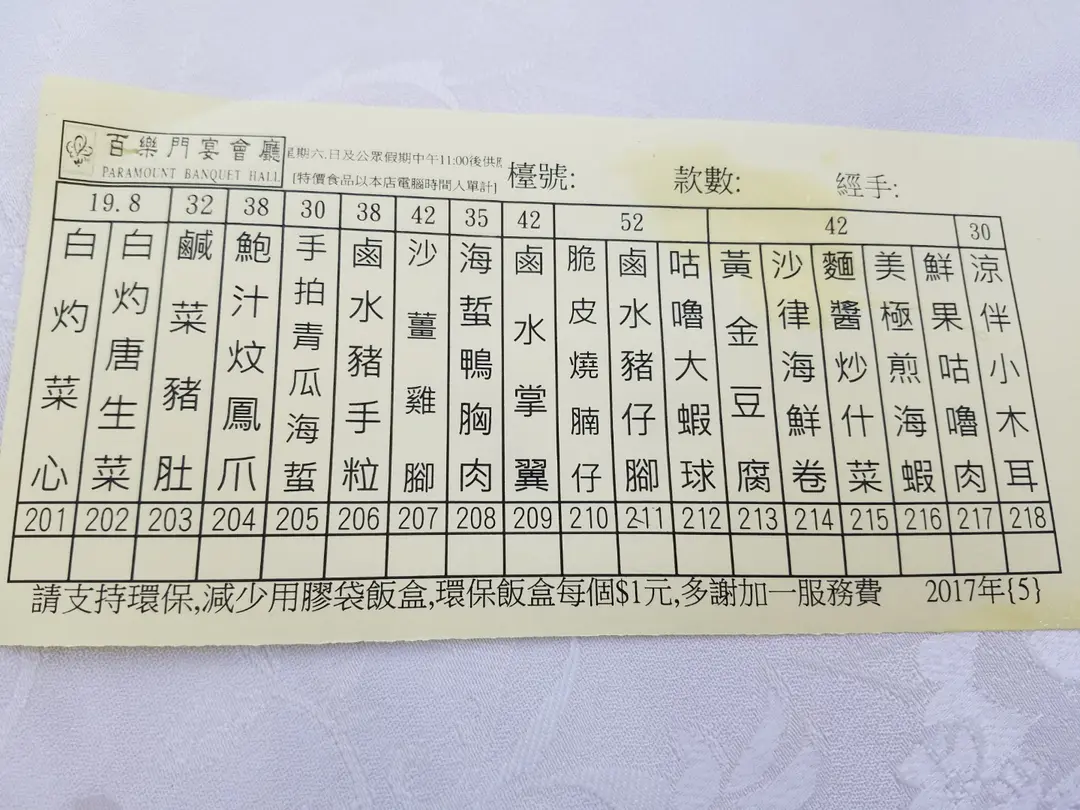 百樂門宴會廳
PARAMOUNT BANQUET HALL
星期六.日及公眾假期中午11:00後供應
[特價食品以本店電腦時間入單計]
檯號:
款數:
經手:
19.8 32 38 30 38 42 35 42 52 42 30
白灼菜心
白灼唐生菜
鹹菜豬肚
鮑汁炆鳳爪
手拍青瓜海蜇
鹵水豬手粒
沙薑雞腳
海蜇鴨胸肉
鹵水掌翼
脆皮燒腩仔
鹵水豬仔腳
咕嚕大蝦球
黃金豆腐
沙律海鮮卷
麵醬炒什菜
美極煎海蝦
鮮果咕嚕肉
涼伴小木耳
201 202 203 204 205 206 207 208 209 210 211 212 213 214 215 216 217 218
請支持環保,減少用膠袋飯盒,環保飯盒每個$1元,多謝加一服務費
2017年{5}